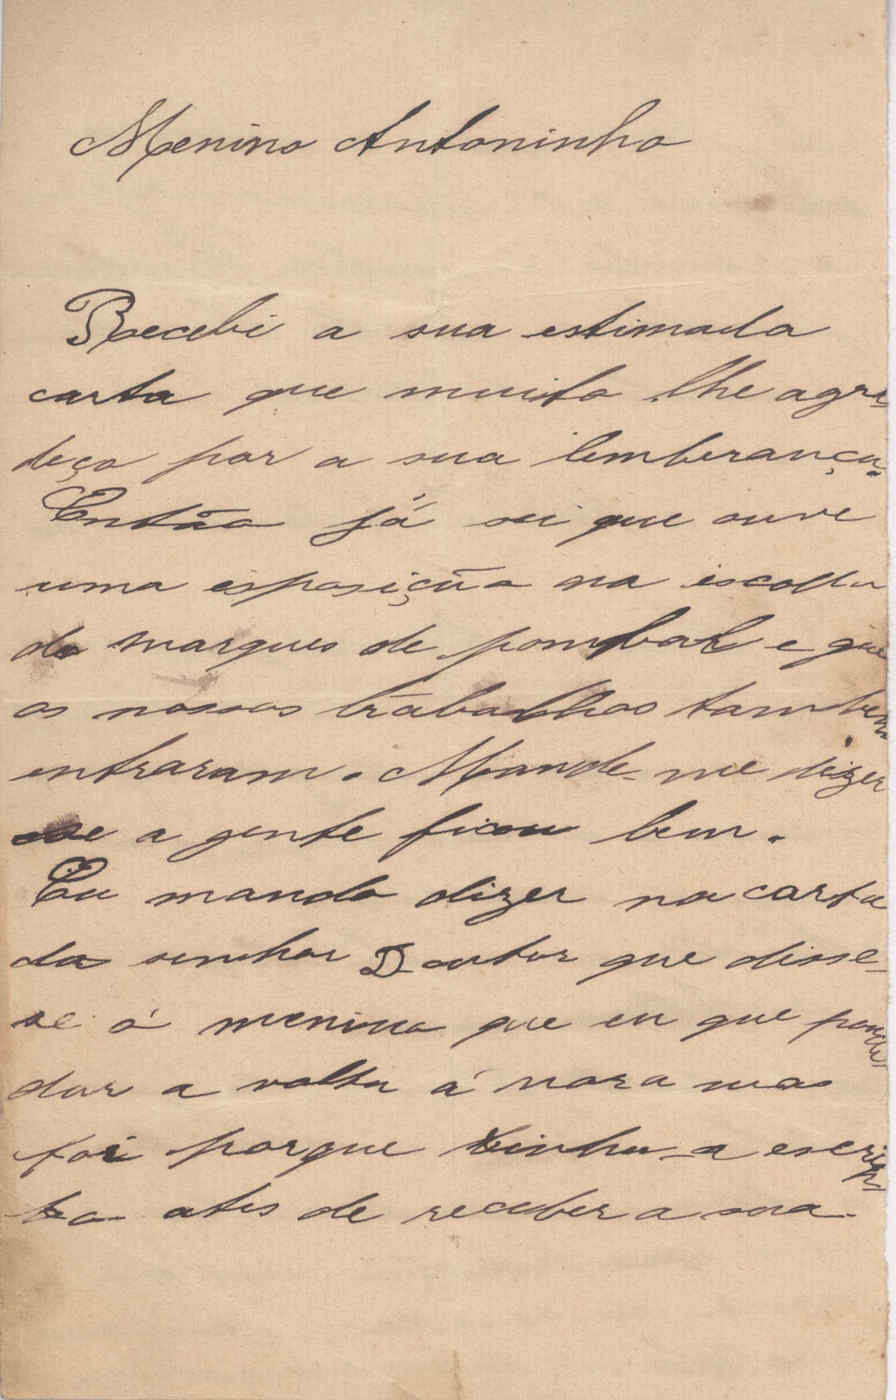 Menino Antoninho
Recebi a sua estimada
carta que muito lhe agra-
deço por a sua lemberança.
Então já sei que ouve
uma esposição na escolla
do marques de pombal e que
os nossos trabalhos tambem
entraram. Mande-me dizer
se a gente ficou bem.
Eu mando dizer na carta
do senhor Doutor que disse-
se á menina que eu que
dar a volta á nora mas
foi porque tinha-a escrip-
to ates de receber a sua.